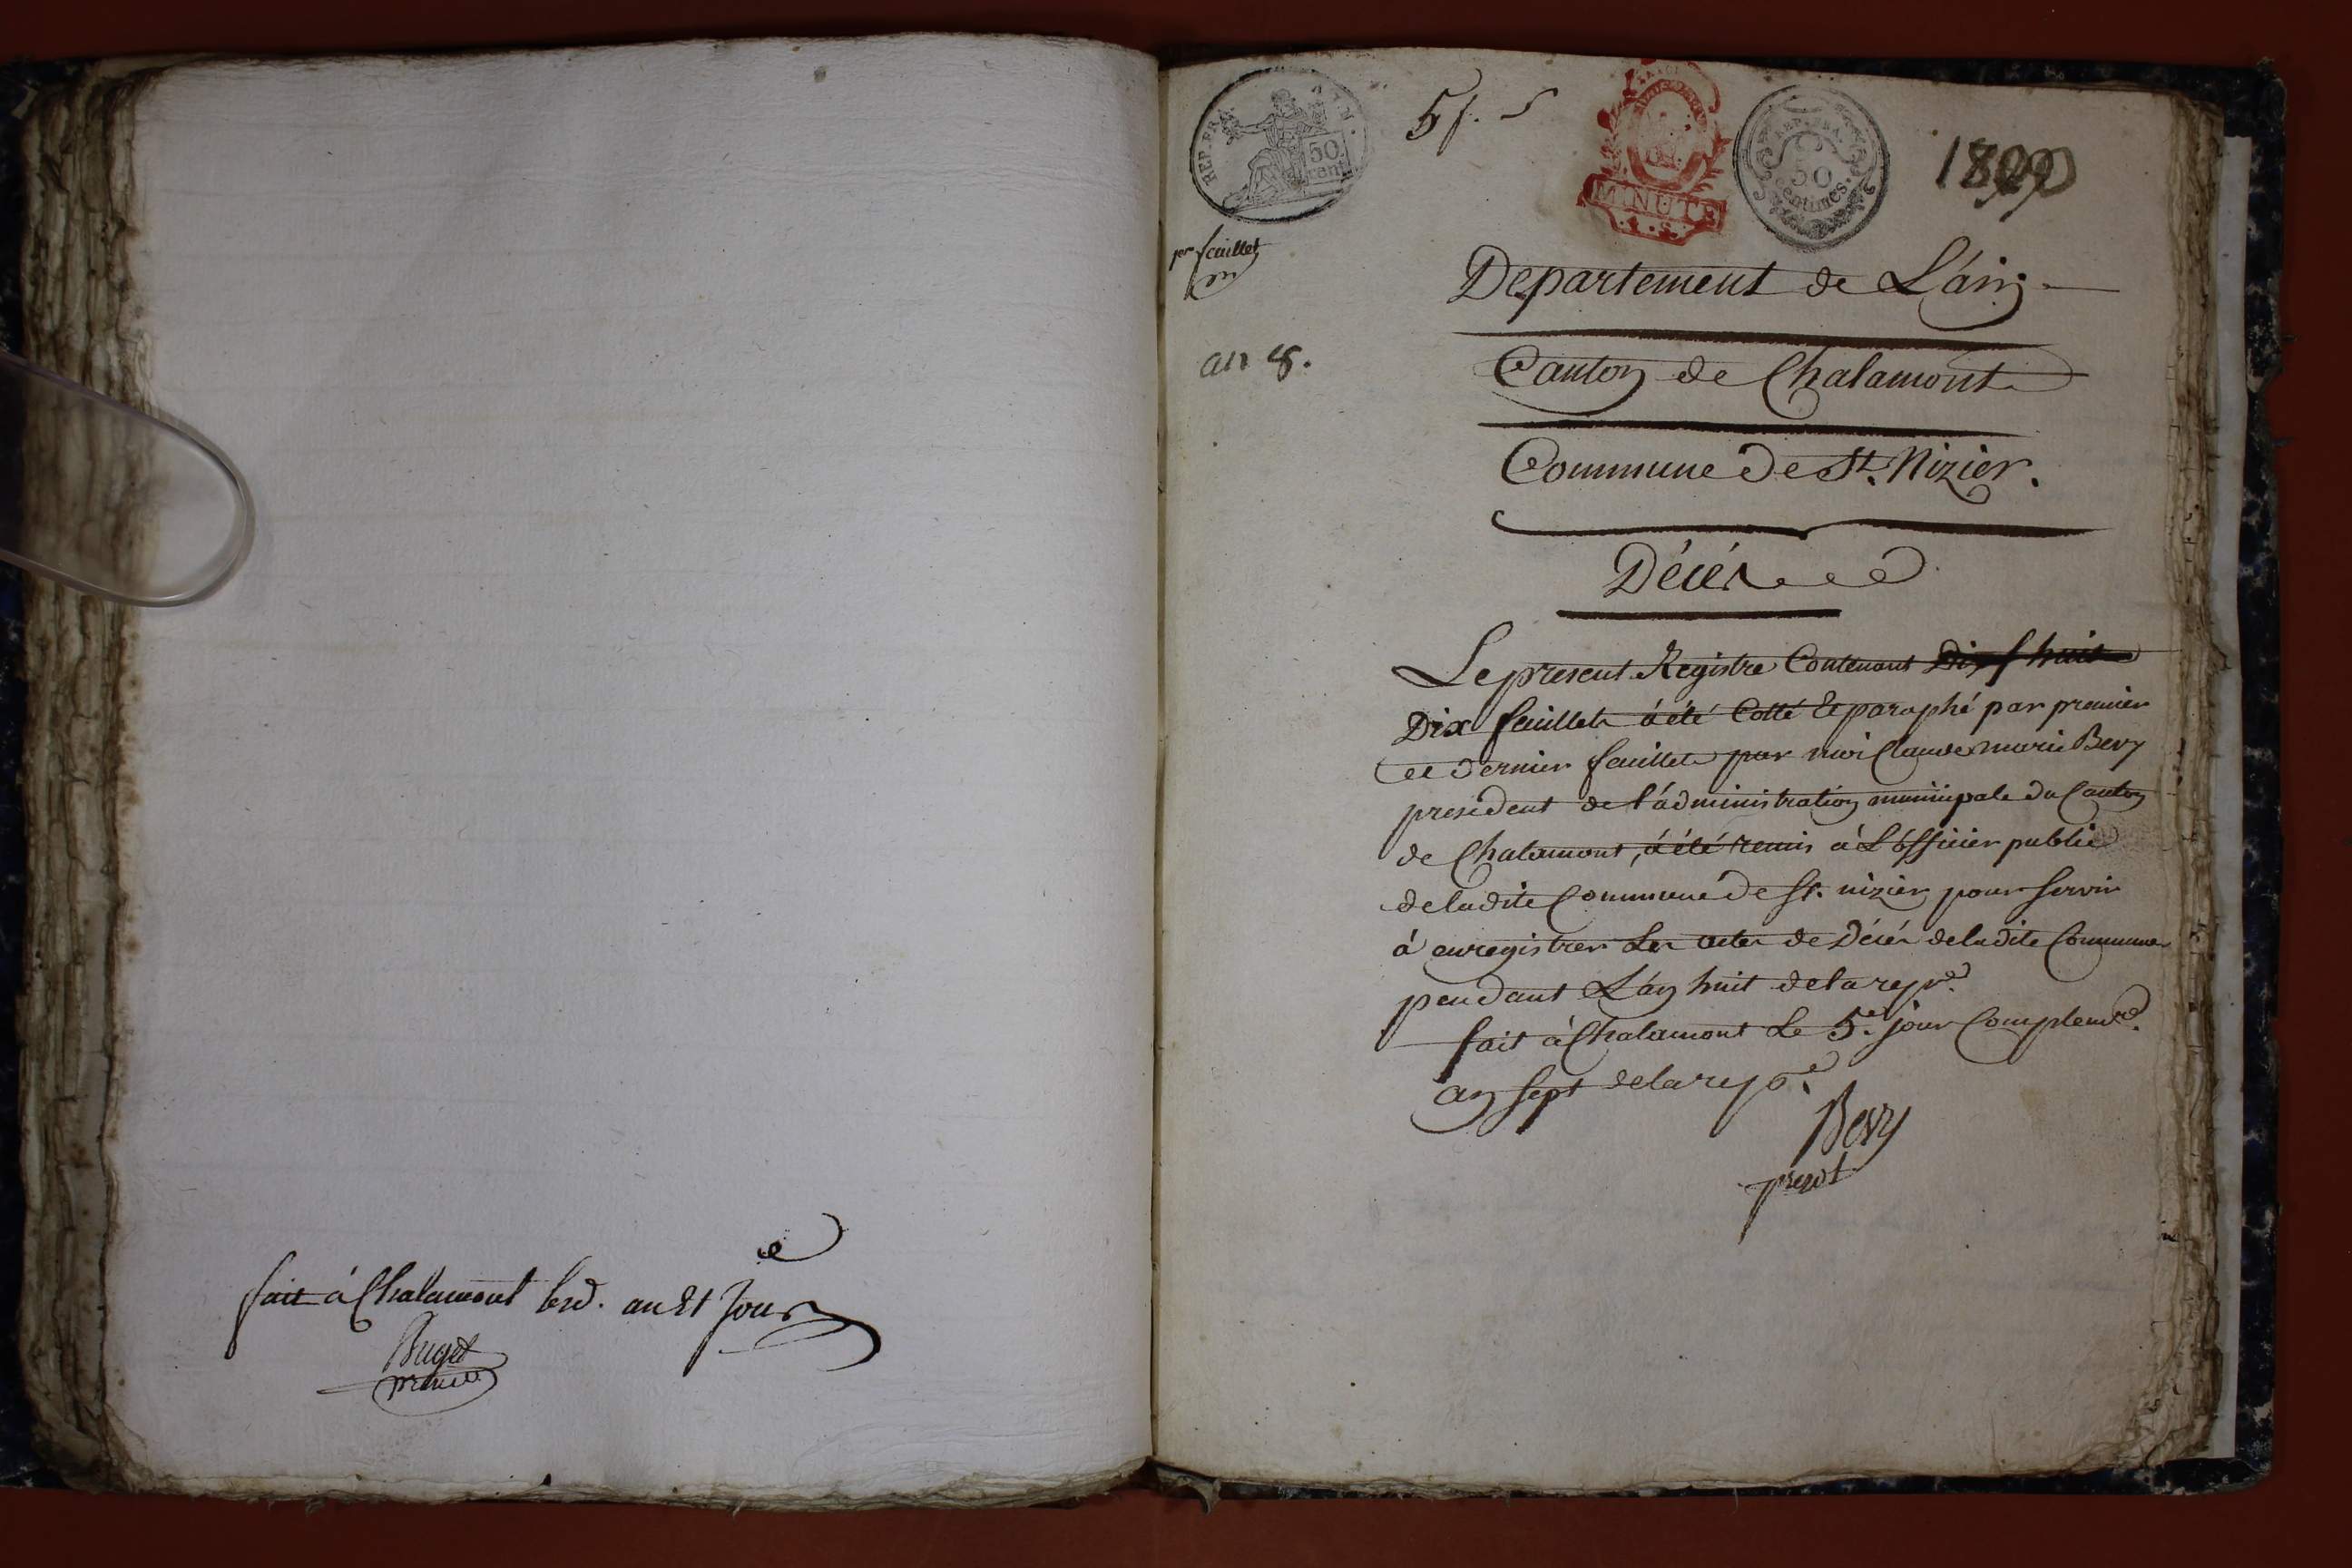 fait à Chalamont led. an et jour
Buget
REP. FRA.
50
cent
5 f. 5
MINUTE
REP. FRA.
50
centimes.
per feuillet
Departement de L'ain
an 8.
Canton de Chalamont
Commune de St. Nizier.
Décés
Le present Registre Contenant Dix huit
Dix feuillets à été Cotté et paraphé par premier
et dernier feuillets par moi Claude marie Bevy
president de l'administration municipale du Canton
de Chalamont, à été remis à L'officier public
de ladite Commune de St. nizier pour servir
à enregistrer Les actes de Décés de ladite Commune
pendant L'an huit de la repe.
fait à Chalamont Le 5e. jour Complemre.
an sept de la repe.
Bevy
presdt